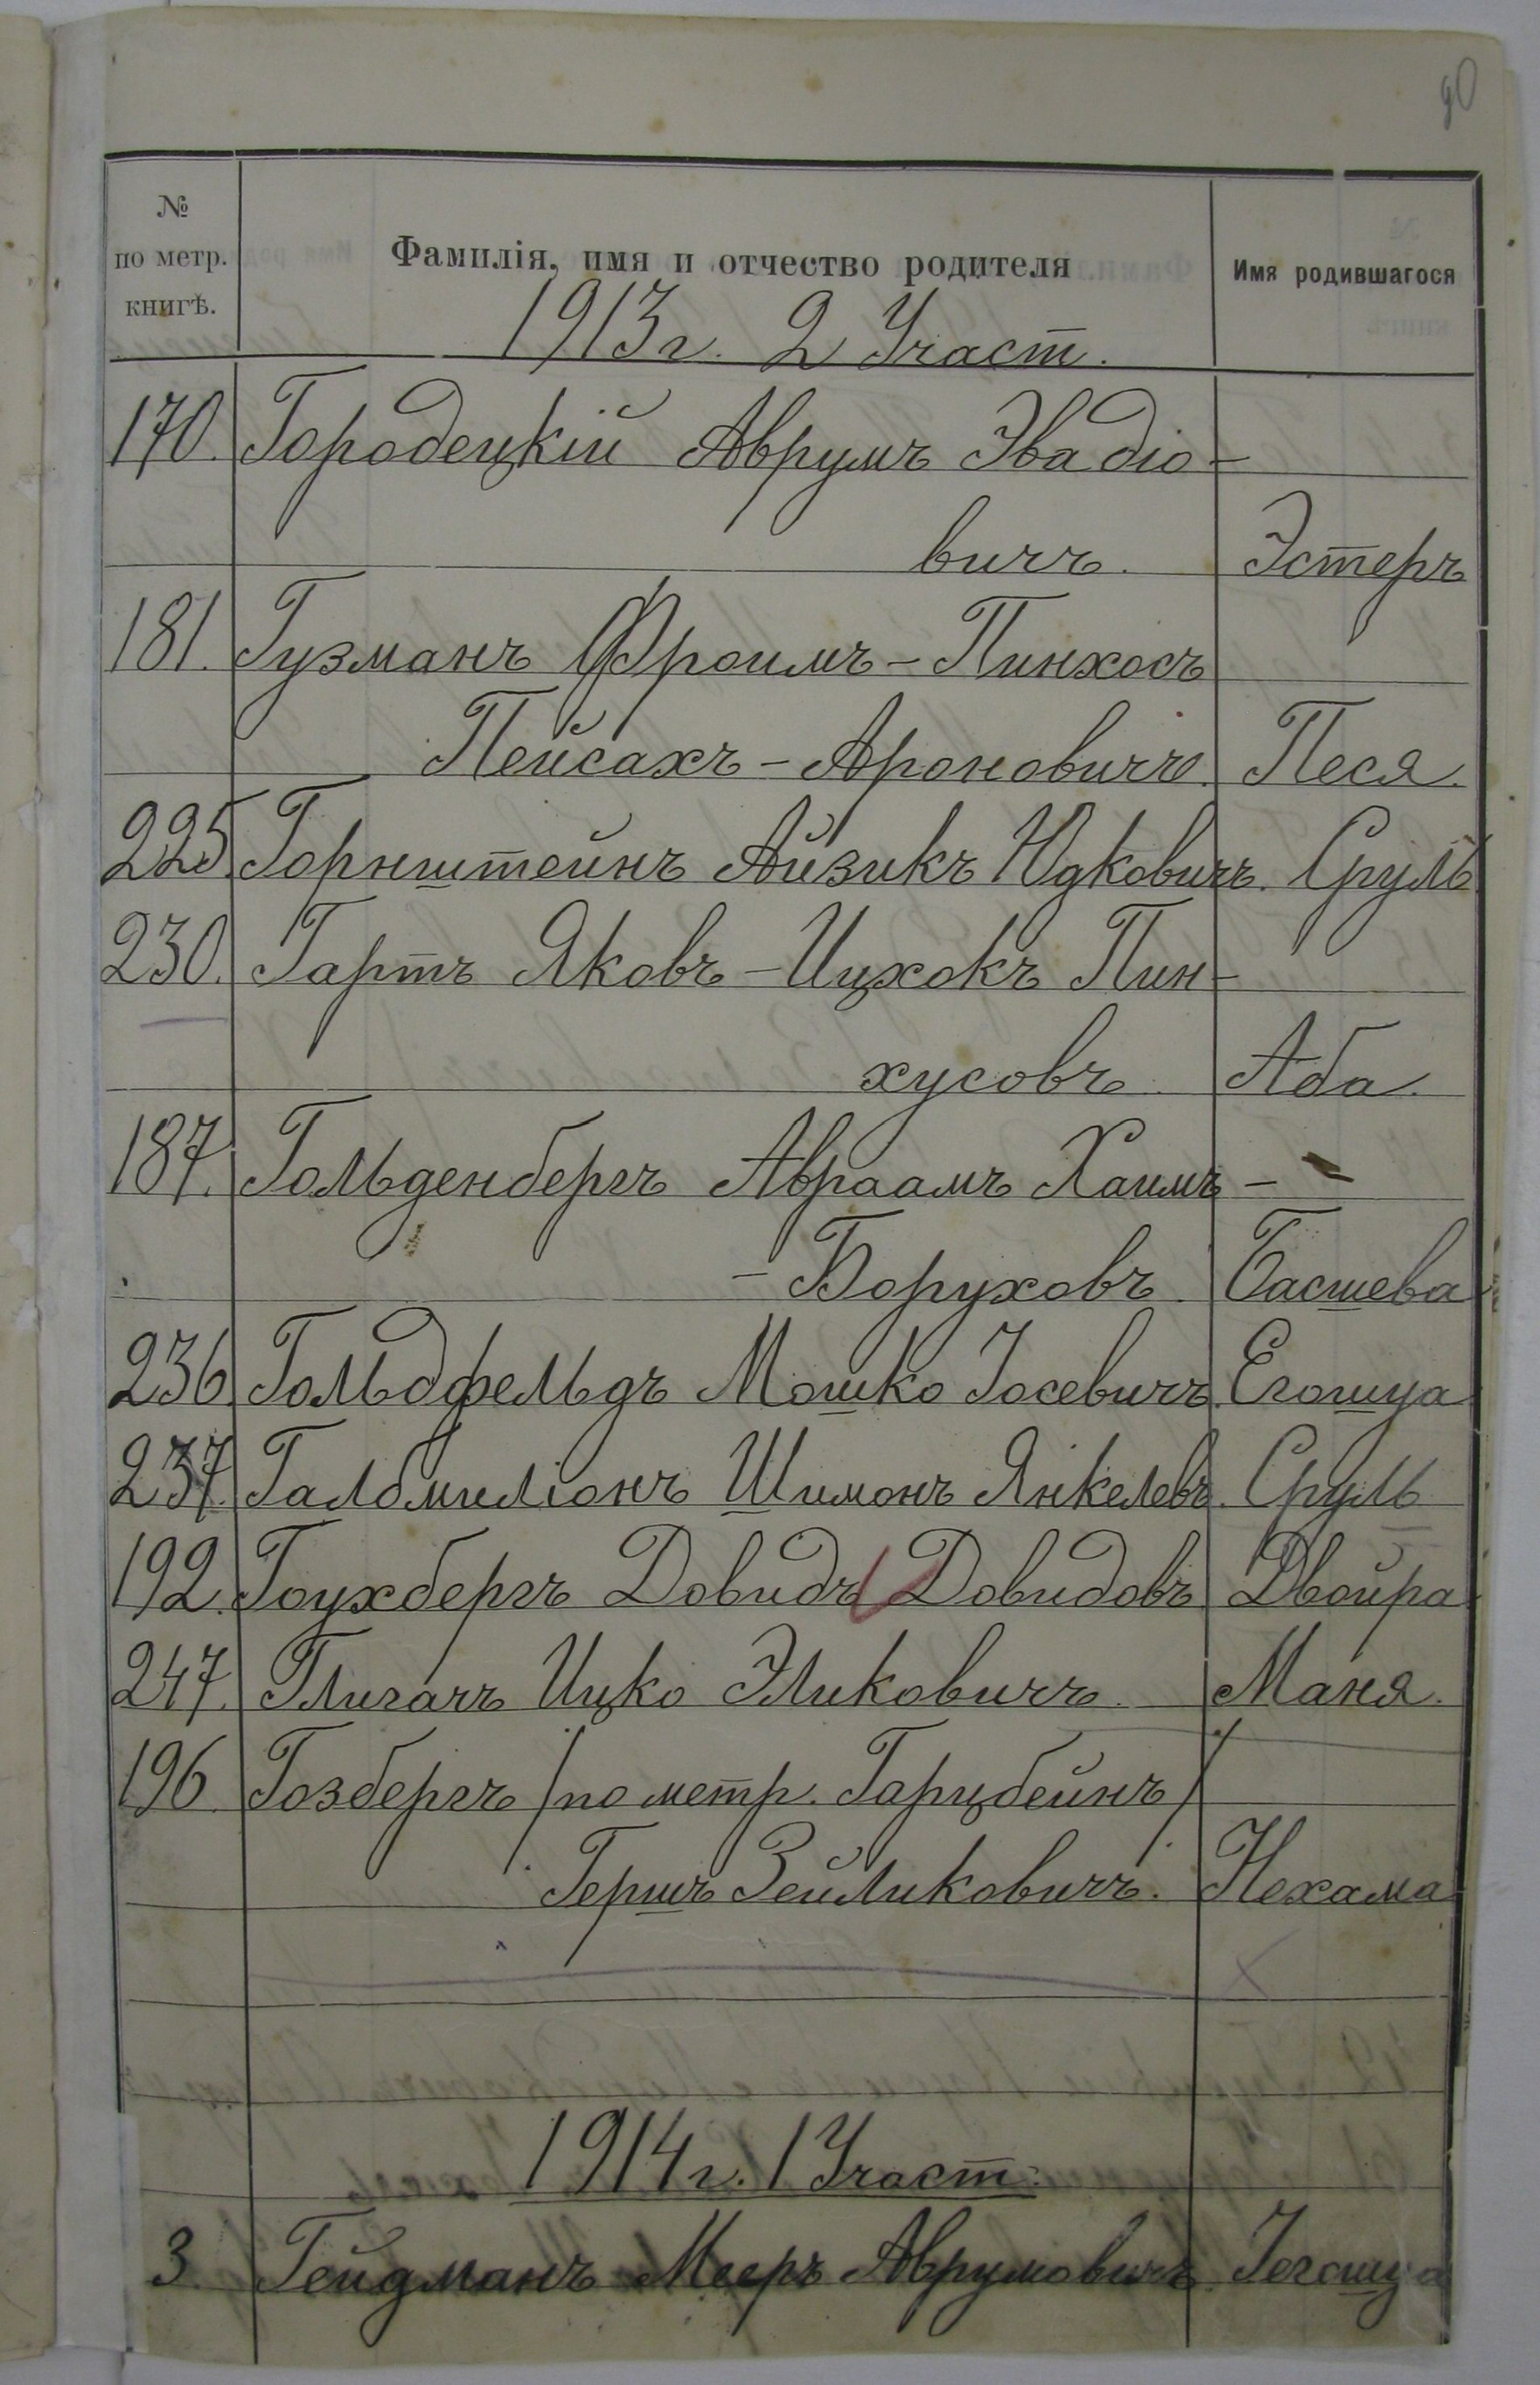 90
№ по метр. книгѣ.
Фамилія, имя и отчество родителя
Имя родившагося
1913 г. 2 Участ.
170. Городецкій Аврумъ Эвадіо-
вичъ. Эстеръ
181. Гузманъ Фроимъ-Пинхосъ
Пейсахъ-Ароновичъ. Песя.
225. Горнштейнъ Айзикъ Юдковичъ. Сруль
230. Гартъ Яковъ-Ицхокъ Пин-
хусовъ Аба.
187. Гольденбергъ Авраамъ Хаимъ-
-Боруховъ. Басшева
236. Гольдфельдъ Мошко Іосевичъ. Егошуа
237. Галбмиліонъ Шимонъ Янкелевъ. Сруль
192. Гоухбергъ Довидъ Довидовъ Двойра
247. Глигачъ Ицко Эликовичъ. Маня.
196 Гозбергъ /по метр. Гарцбейнъ/
Гершъ Зейликовичъ. Нехама
1914 г. 1 Участ.
3. Гейдманъ Мееръ Аврумовичъ. Іегошуа